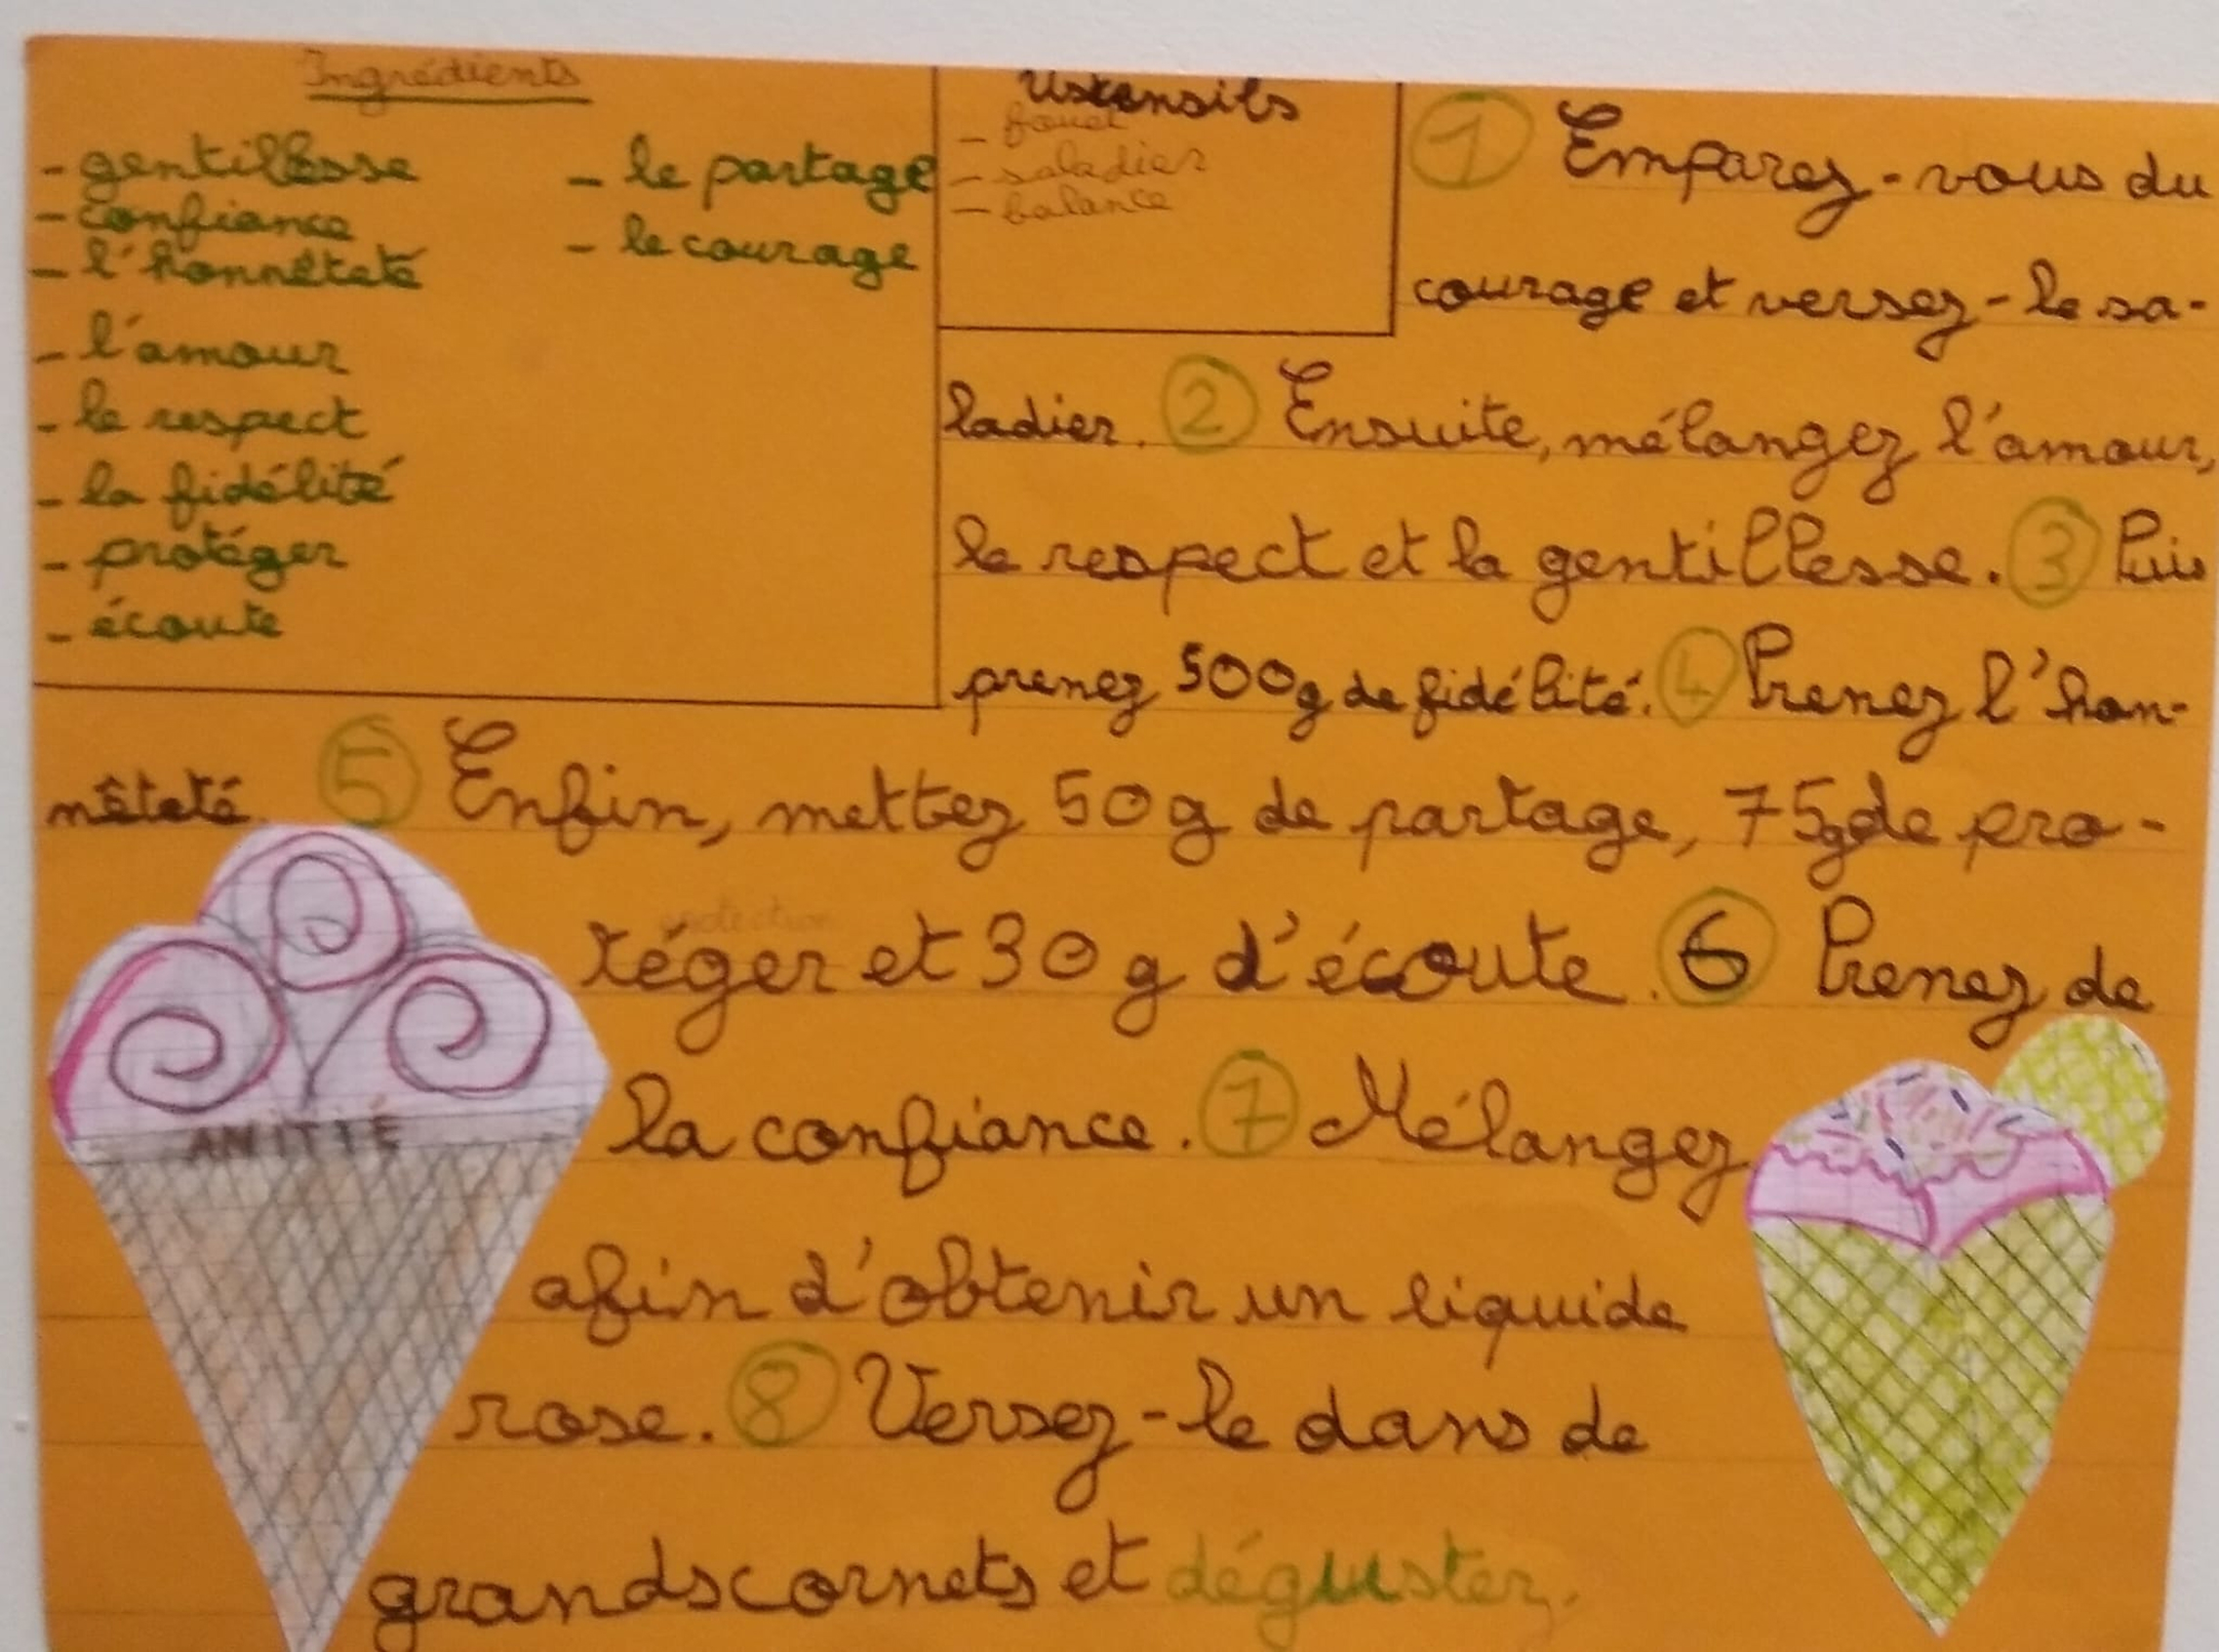 Ingrédients
- gentillesse
- confiance
- l'honnêteté
- l'amour
- le respect
- la fidélité
- protéger
- écoute
- le partage
- le courage
Ustensils
- fouet
- saladier
- balance
① Emparez-vous du
courage et versez-le sa-
ladier. ② Ensuite, mélangez l'amour,
le respect et la gentillesse. ③ Puis
prenez 500g de fidélité. ④ Prenez l'hon-
nêteté. ⑤ Enfin, mettez 50g de partage, 75g de pro-
protection
téger et 30g d'écoute. ⑥ Prenez de
la confiance. ⑦ Mélangez
afin d'obtenir un liquide
rose. ⑧ Versez-le dans de
grands cornets et déguster.
AMITIÉ